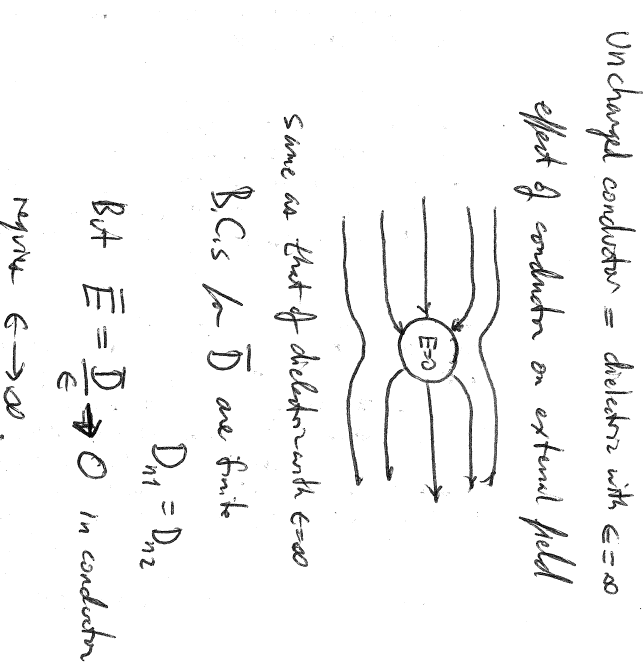 Uncharged conductor = dielectric with ϵ=∞
effect of conductor on external field
E=0
same as that of dielectric with ϵ=∞
B.C.s for D̄ are finite
Dn1 = Dn2
But Ē = D̄/ϵ → 0 in conductor
requires ϵ → ∞.